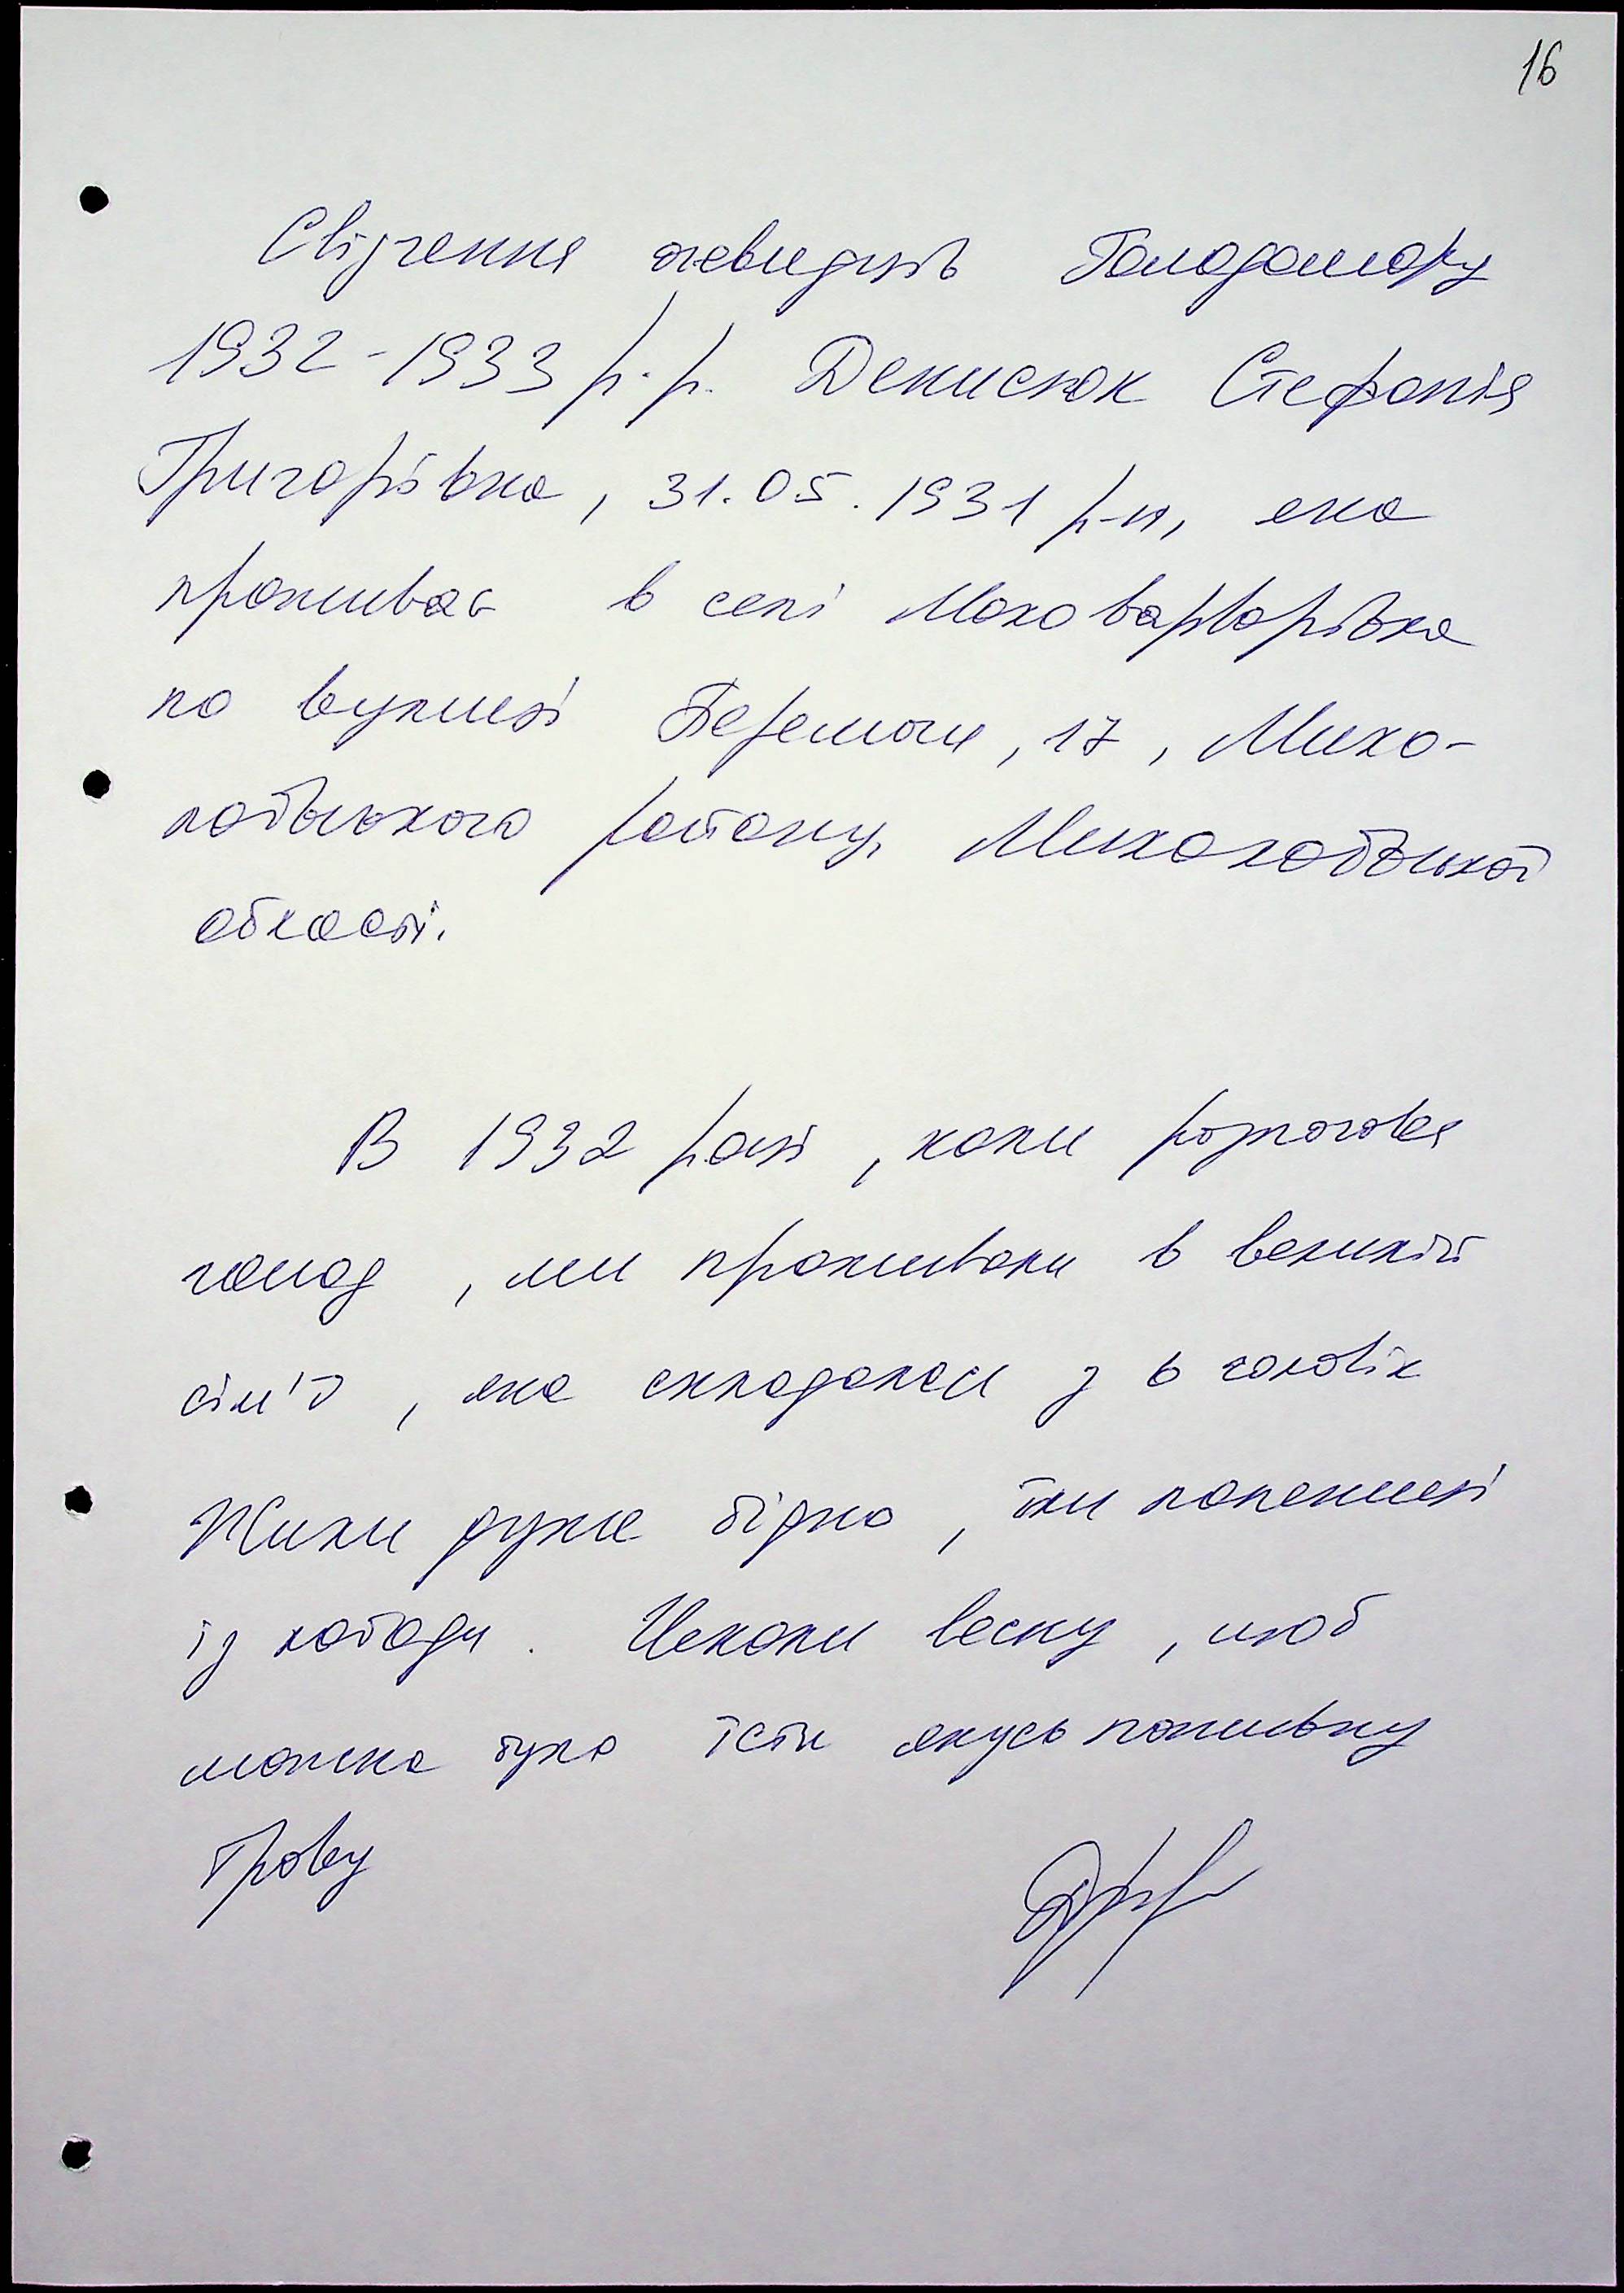 16
Свідчення очевидців Голодомору
1932-1933 р.р. Денисюк Стефанія
Григорівна, 31.05.1931 р-н, яка
проживає в селі Маловарварівка
по вулиці Перемоги, 17, Мико-
лаївського району, Миколаївської
області.
В 1932 році, коли розпочався
голод, ми проживали в великій
сім'ї, яка складалася з 6 чоловік
Жили дуже бідно, їли паляниці
із лободи. Чекали весну, щоб
можна було їсти якусь поживну
траву